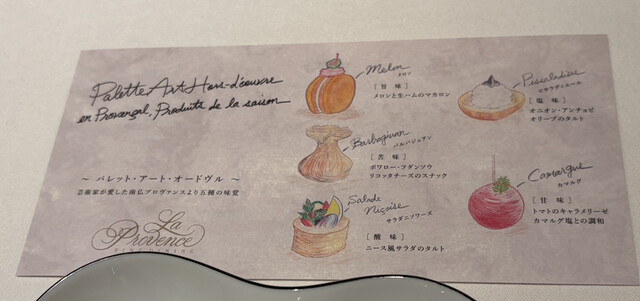 Palette Art Hors-d'œuvre
en Provençal, Produits de la saison
～ パレット・アート・オードヴル ～
芸術家が愛した南仏プロヴァンスより五種の味覚
La
Provence
Melon
メロン
[ 旨 味 ]
メロンと生ハムのマカロン
Barbagiuan
バルバジュアン
[ 苦 味 ]
ポワロー・フダンソウ
リコッタチーズのスナック
Salade
Niçoise
サラダニソワーズ
[ 酸 味 ]
ニース風サラダのタルト
Pissaladière
ピサラディエール
[ 塩 味 ]
オニオン・アンチョビ
オリーブのタルト
Camargue
カマルグ
[ 甘 味 ]
トマトのキャラメリーゼ
カマルグ塩との調和